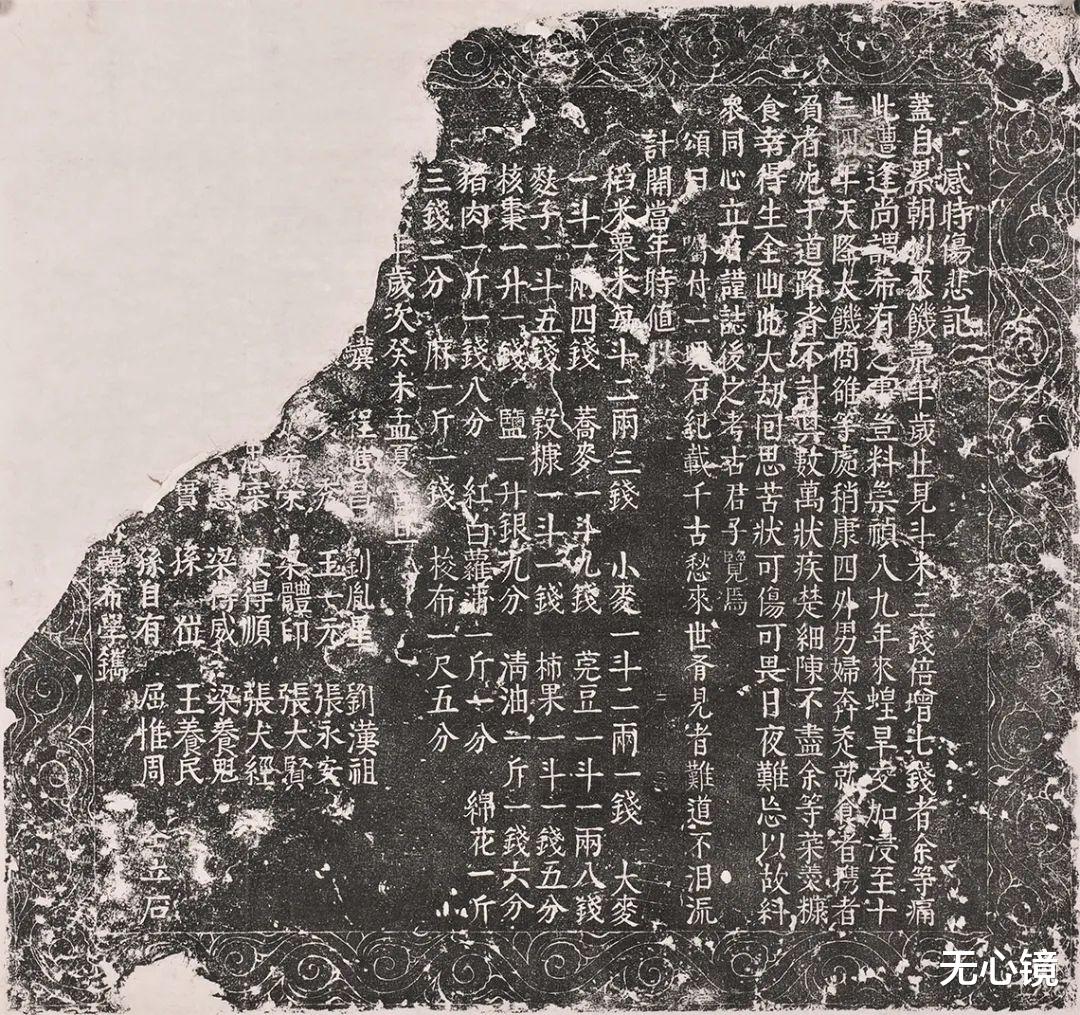 感時傷悲記
蓋自累朝以來饑荒年歲止見斗米三錢倍增七錢者余等痛
此遭逢尚謂希有之事豈料崇禎八九年來蝗旱交加浸至十
三四年天降大饑商雒等處稍康四外男婦奔走就食者携者
負者死于道路者不計其數萬狀疾楚細陳不盡余等菜羹糠
食幸得生全幽此大劫回思苦狀可傷可畏日夜難忘以故糾
眾同心立石謹誌後之考古君子覽焉
頌曰 囑付一與石紀載千古愁來世斉見者難道不泪流
計開當年時値
稻米粟米每斗二兩三錢 小麥一斗二兩一錢 大麥
一斗一兩四錢 蕎麥一斗九錢 莞豆一斗一兩八錢
麩子一斗五錢 穀糠一斗一錢 柿果一斗一錢五分
核棗一升一錢 鹽一升銀九分 清油一斤一錢六分
猪肉一斤一錢八分 紅白蘿蔔一斤一分 綿花一斤
三錢二分 麻一斤一錢 梭布一尺五分 小
年歲次癸未孟夏
程進 劉胤星 劉漢祖
王一元 張永安
朱體印 張大賢
梁得順 張大經
梁得威 梁養魁
孫 王養民
孫自有 屈惟周
韓布學鐫 仝立石
无心镜